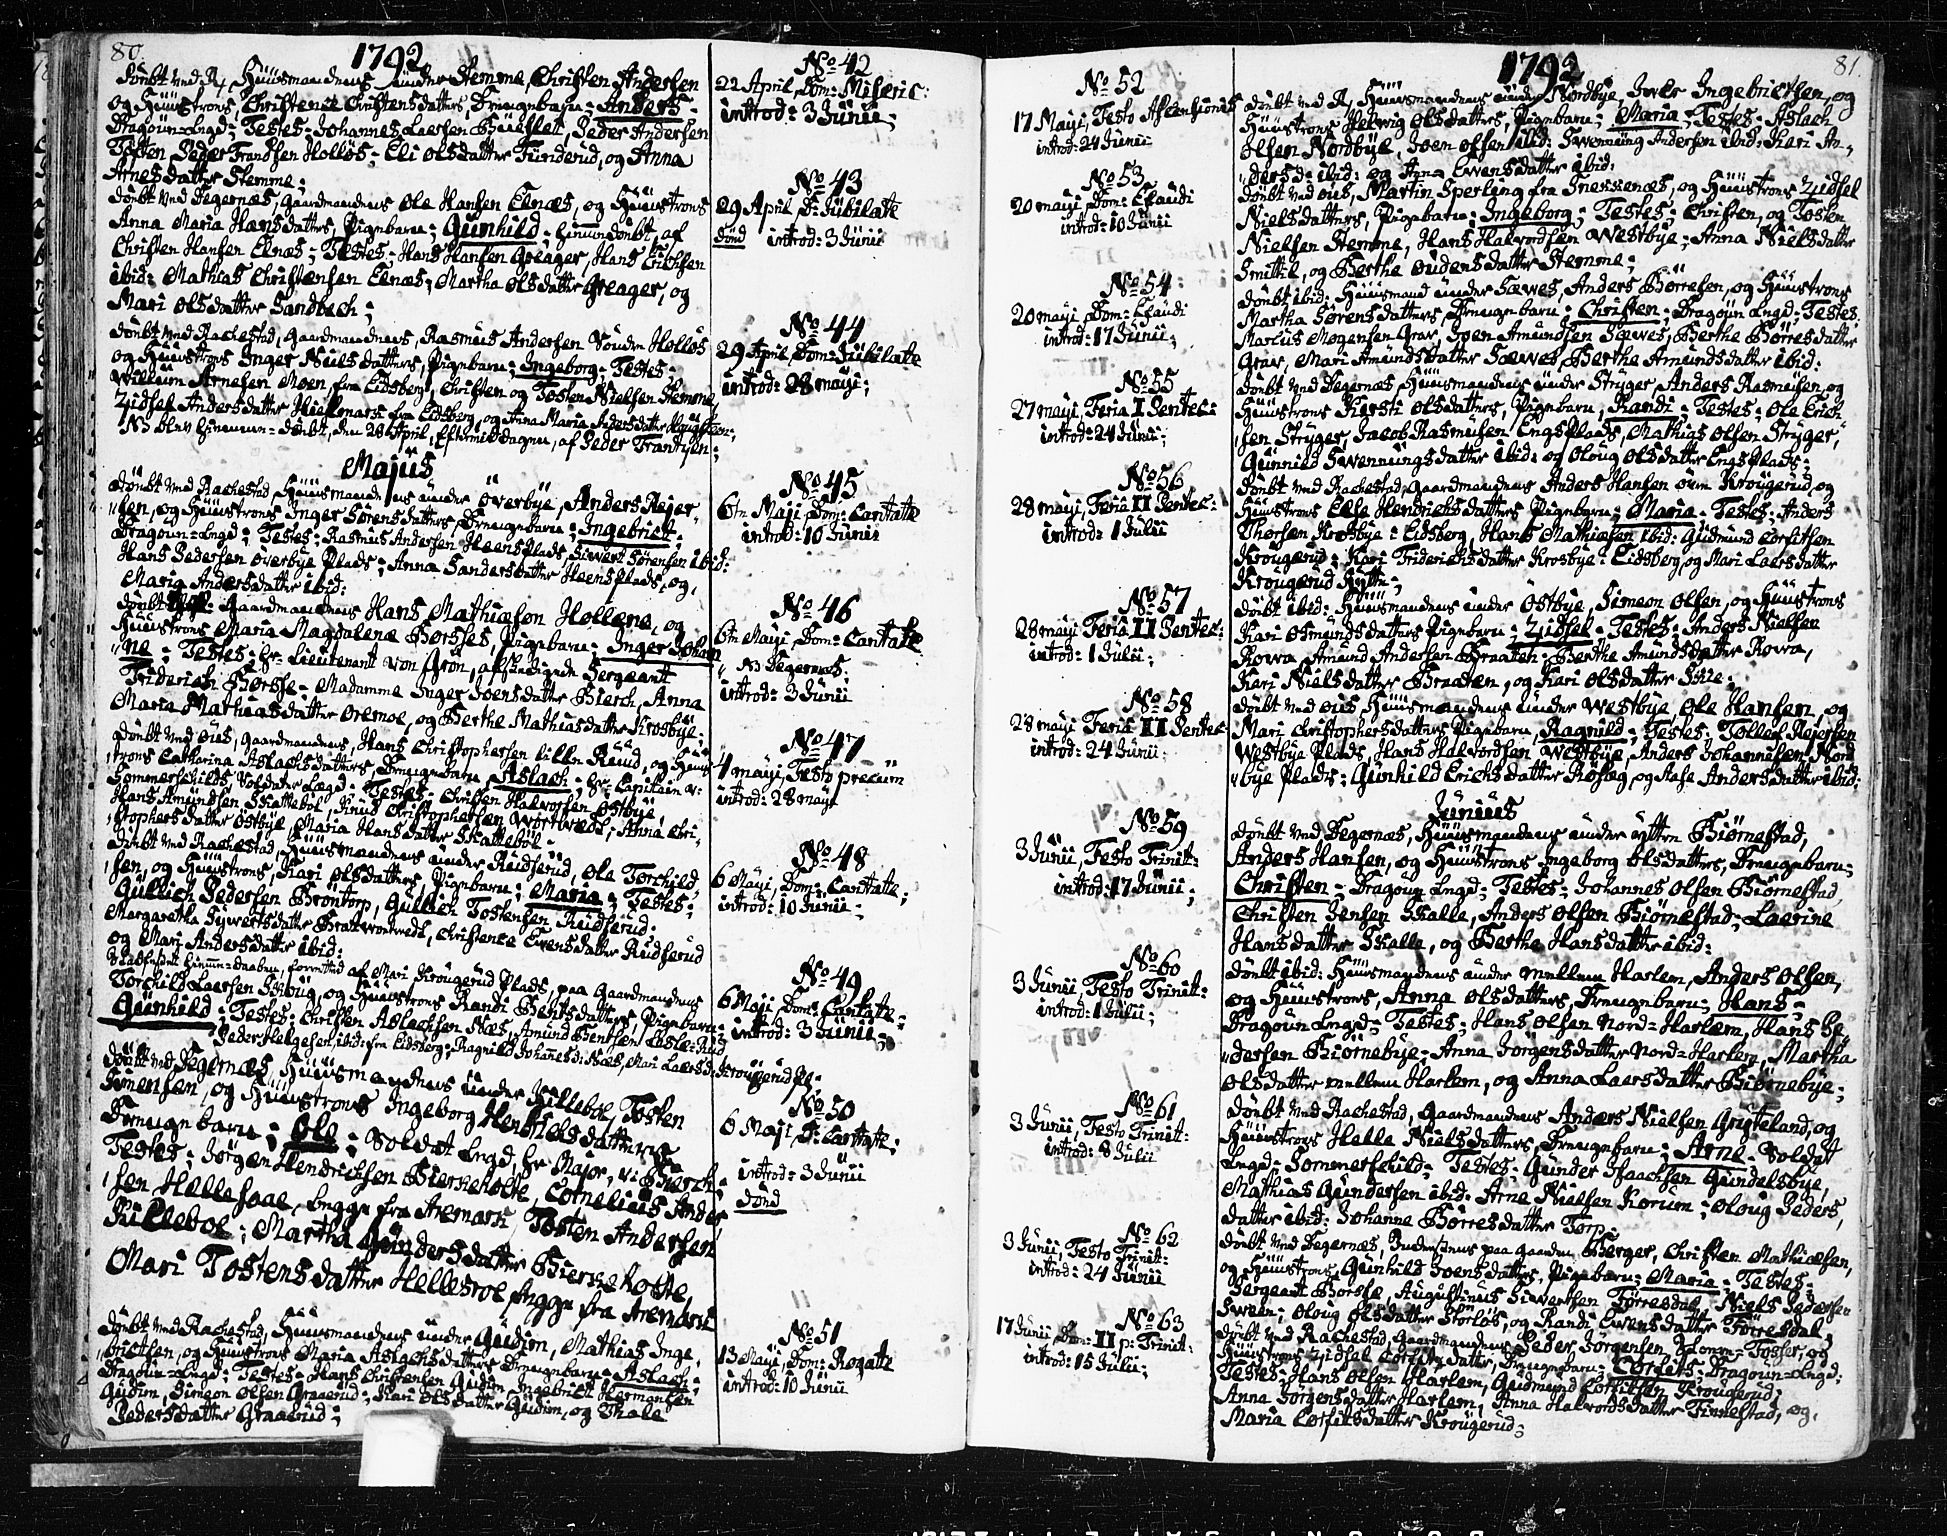 80.
1792
döbt ved R, Huusmandens under Stemme, Christen Andersen
og Huustrons, Christence Christensdatters, Drengebarn: Anders:
Dragoun-Lægd: Testes: Johannes Laersen Peder Andersen
Toften Peder Frandsen Hollös; Eli Olsdatter Tunderud, og Anna
Arnesdatter Stemme;
döbt ved Degernæs, Gaardmandens Ole Hansen Eenæs, og Huustrons
Anna Maria Hansdatters, Pigebarn; Gunhild: hiemmedöbt, af
Christen Hansen Eenæs; Testes: Hans Hansen Greager, Hans Erichsen
ibid: Mathias Christensen Eenæs; Martha Olsdatter Greager, og
Mari Olsdatter Sandbech;
döbt ved Rachestad, Gaardmandens, Rasmus Andersen Hollös
og Huustrons Inger Nielsdatters, Pigebarn; Ingeborg: Testes:
Willum Arnesen Moen, fra Eidsberg, Christen og Tosten Nielsen Stemme,
Zidsel Andersdatter fra Eidsberg, og Anna Maria Andersdatter
NB blev hiemme-döbt, den 26 April, Eftermiddagen, af Peder Frantzen;
Majus
döbt ved Rachestad Huusmandens under överbye, Anders Rejer-
sen, og Huustrons Inger Sörensdatters, Drengebarn; Ingebrict:
Dragoun-Lægd: Testes: Rasmus Andersen Heens Plads, Siwert Sörensen ibid:
Hans Pedersen överbye Plads; Anna Sandersdatter Heens Plads, og,
Maria Andersdatter ibid:
döbt Gaardmandens Hans Mathiæson Hollene, og
Huustrons Maria Magdalena Borsses, Pigebarn: Inger Joham
ne: Testes: Hr: Lieutenant von Grön, afskedigede Sergeant
Friderich Börsse: Madamme Inger Joensdatter Bierch, Anna
Maria Mathiasdatter Oremoe, og Berthe Mathiasdatter Krosbye:
döbt ved öies, Gaardmandens, Hans Christophersen lille Ruud, og Huus
trons Catharina Aslachsdatters, Drengebarn Aslach: Hr: Capitain v:
Sommerschilds Soldater Lægd: Testes: Christen Halvorsen Östbye,
Hans Amundsen Skatteböl, Knud Christophersen Wortwedt; Anna Chri-
stophersdatter Östbye, Maria Hansdatter Skatteböl:
döbt ved Rachestad, Huusmandens under Rudserud, Ole Torchild
sen, og Huustrons, Kari Olsdatters, Pigebarn: Maria; Testes;
Gullich Pedersen Bröntorp, Gullich Tostensen Rudserud:
Margaretha Sywertsdatter Christence Ewensdatter Rudserud
og Mari Andersdatter ibid:
Stadfæstet hiemme-daaben, forrettet af Mari Krougerud Plads, paa Gaardmandens
Torchild Laersen Skoug, og Huustrons Randi Bentsdatters, Pigebarn:
Gunhild: Testes: Christen Aslachsen Næs, Amund Bentsen Losle-Rud
Peder Helgesen, ibid: fra Eidsberg; Ragnild Johanesd: Næs, Mari Laersd: Krougerud Pl:
döbt ved Degernæs, Huusmandens under Killeboe, Tosten
Simensen, og Huustrons Ingeborg Hendrichsdatters
Drengebarn; Ole; Soldat Lægd, Hr Major, v: Bierch.
Testes; Jörgen Hendrichsen Bierkeholte, Cornelius Ander
sen Hellesaae, begge fra Aremark, Tosten Andersen
Killeboe; Martha Gundersdatter Bierkeholte,
Mari Tostensdatter Hellesroe begge fra Aremark
döbt ved Rachestad, Huusmandens under Gudim, Mathias Inge-
brictsen, og Huustrons Maria Aslachsdatters Drengebarn: Aslach:
Dragoun-Lægd: Testes: Hans Christensen Gudim, Ingebrict Hermansen
Gudim, Simeon Olsen Graaerud; Kari Olsdatter Gudim, og Thale
Pedersdatter Graaerud;
No 42
22 April, Dom: Miseric:
introd: 3 Junii;
No 43
29 April, D: Jubilate
död introd: 3 Junii
No 44
29 April, Dom: Jubilate
introd: 28 Maji;
No 45
6te Maji, Dom: Cantate
introd: 10 Junii
No 46
6te Maji, Dom: Cantate
NB Degernæs:
introd: 3 Junii
No 47
4 maji, Festo precum
introd: 28 maji
No 48
6 Maji, Dom: Cantate;
introd: 10 Junii;
No 49
6 Maji, Dom: Cantate:
introd: 3 Junii;
No 50
6 Maji, D: Cantate;
introd: 3 Junii
död
No 51
13 Maji, Dom: Rogate
introd: 10 Junii
No 52
17 Maji, Festo Ascensionis
introd: 24 Junii
No 53
20 maji, Dom: Exaudi
introd: 10 Junii
No 54
20 maji, Dom: Exaudi
introd: 17 Junii;
No 55
27 maji, Feria I Pentec:
introd: 24 Junii;
No 56
28 maji, Feria II Pentec:
introd: 1 Julii
No 57
28 maji Feria II Pentec:
introd: 1 Julii;
No 58
28 maji Feria II Pentec
introd: 24 Junii;
No 59
3 Junii, Festo Trinit:
introd: 17 Junii;
No 60
3 Junii, Festo Trinit:
introd: 1 Julii;
No 61
3 Junii, Festo Trinit:
introd: 8 Julii
No 62
3 Junii, Festo Trinit:
introd: 24 Junii
No 63
17 Junii Dom: II p: Trinit:
introd: 15 Julii;
1792
81.
döbt ved R, Huusmandens under Nordbye, Iver Ingebrictsen, og
Huustrons Helwig Olsdatters, Pigebarn; Maria; Testes: Aslach
Olsen Nordbye, Joen Olsen ibid: Swennung Andersen ibid: Kari An-
dersd: ibid: og Anna Ewensdatter ibid:
döbt ved öies, Martin Sperling fra Snekkenæs, og Huustrons Zidsel
Nielsdatters, Pigebarn; Ingeborg; Testes; Christen, og Tosten
Nielsen Stemme, Hans Halvordsen Westbye; Anna Nielsdatter
Smittil, og Berthe Oudensdatter Stemme;
döbt ibid: Huusmand under Sæwes, Anders Börresen, og Huustrons
Martha Sörensdatters, Drengebarn: Christen; Dragoun Lægd: Testes:
Marcus Mogensen Grav, Joen Amundsen Sæwes, Berthe Börresdatter
Grav, Mari Amundsdatter Sæwes, Berthe Amundsdatter ibid:
döbt ved Degernæs Huusmandens under Stryger Anders Rasmusen, og
Huustrons Kiersti Olsdatters, Pigebarn, Randi; Testes: Ole Erich
sen Stryger, Jacob Rasmusen Engsplads, Mathias Olsen Stryger,
Gunnild Swennungsdatter ibid: og Oloug Olsdatter Engsplads:
döbt ved Rachestad, Gaardmandens Anders Hansen Krougerud, og
Huustrons Else Hendrichsdatters, Pigebarn; Maria: Testes: Anders
Thorsen Krosbye: Eidsberg, Hans Mathiæsen ibid: Gudmund Corfitsen
Krougerud; Kari Friderichsdatter Krosbye: Eidsberg, og Mari Laersdatter
Krougerud Hytte;
döbt ibid: Huusmandens under Östbye, Simeon Olsen, og Huustrons
Kari Osmundsdatters Pigebarn; Zidsel: Testes: Anders Nielsen
Rowa, Amund Andersen Braaten; Berthe Amundsdatter Rowa,
Kari Nielsdatter Braaten, og Kari Olsdatter Skie;
döbt ved öies Huusmandens under Westbye, Ole Hansen, og
Mari Christophersdatters Pigebarn, Ragnild; Testes: Tollef Rejersen
Westbye Plads, Hans Halvordsen Westbye, Anders Johannesen Nord
bye Plads; Gunhild Erichsdatter og Aase Andersdatter ibid:
Junius
döbt ved Degernæs, Huusmandens under yttre Biörnestad,
Anders Hansen, og Huustrons Ingeborg Olsdatters, Drengebarn:
Christen - Dragoun Lægd; Testes: Johannes Olsen Biörnestad
Christen Jensen Skalle, Anders Olsen Biörnestad; Laerine
Hansdatter Skalle, og Berthe Hansdatter ibid:
döbt ibid: Huusmandens under mellem Harlem, Anders Olsen,
og Huustrons, Anna Olsdatters, Drengebarn; Hans:
Dragoun-Lægd: Testes; Hans Olsen Nord-Harlem, Hans Pe
dersen Biörnebye: Anna Jorgensdatter Nord-Harlem, Martha
Olsdatter mellem Harlem, og Anna Laersdatter Biörnebye;
döbt ved Rachestad, Gaardmandens Anders Nielsen Grysteland, og
Huustrons Helle Nielsdatters, Drengebarn; Arne: Soldat
Lægd: Sommerschild: Testes: Gunder Isaachsen Gundelsbye,
Mathias Gundersen ibid: Arne Nielsen Korum; Oloug Peders,
datter ibid: Johanne Börresdatter Torp:
döbt ved Degernæs, paa gaarden Berger, Christen Mathiæsen,
og Huustrons, Gunhild Joensdatters, Pigebarn: Maria: Testes;
Sergeant Borsse, Augustinus Siwertsen Törresdal, Niels Pedersen
Sween; Oloug Olsdatter Storlös, og Randi Ewensdatter Törresdal,
döbt ved Rachestad, Gaardmandens Peder Jörgensen, Fosser, og
Huustrons Zidsel Corfitzdatter, Drengebarn: Corfits: Dragoun-Lægd:
Testes: Hans Olsen Harlem, Gudmund Corfitsen Krougerud;
Anna Jorgensdatter Harlem, Anna Halvordsdatter Finnestad, og,
Maria Corfitsdatter Krougerud;